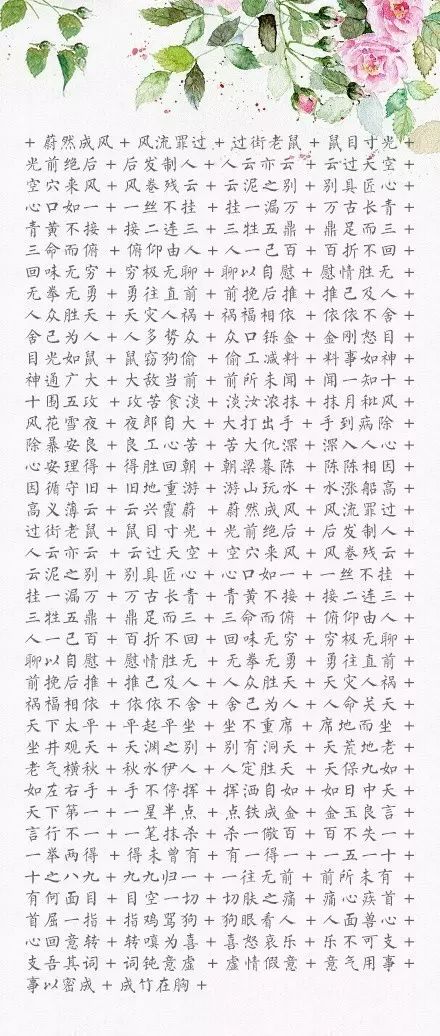 + 蔚然成风 + 风流罪过 + 过街老鼠 + 鼠目寸光 +
光前绝后 + 后发制人 + 人云亦云 + 云过天空 +
空穴来风 + 风卷残云 + 云泥之别 + 别具匠心 +
心口如一 + 一丝不挂 + 挂一漏万 + 万古长青 +
青黄不接 + 接二连三 + 三牲五鼎 + 鼎足而三 +
三命而俯 + 俯仰由人 + 人一己百 + 百折不回 +
回味无穷 + 穷极无聊 + 聊以自慰 + 慰情胜无 +
无拳无勇 + 勇往直前 + 前挽后推 + 推己及人 +
人众胜天 + 天灾人祸 + 祸福相依 + 依依不舍 +
舍己为人 + 人多势众 + 众口铄金 + 金刚怒目 +
目光如鼠 + 鼠窃狗偷 + 偷工减料 + 料事如神 +
神通广大 + 大敌当前 + 前所未闻 + 闻一知十 +
十围五攻 + 攻苦食淡 + 淡汝浓抹 + 抹月秕风 +
风花雪夜 + 夜郎自大 + 大打出手 + 手到病除 +
除暴安良 + 良工心苦 + 苦大仇深 + 深入人心 +
心安理得 + 得胜回朝 + 朝梁暮陈 + 陈陈相因 +
因循守旧 + 旧地重游 + 游山玩水 + 水涨船高 +
高义薄云 + 云兴霞蔚 + 蔚然成风 + 风流罪过 +
过街老鼠 + 鼠目寸光 + 光前绝后 + 后发制人 +
人云亦云 + 云过天空 + 空穴来风 + 风卷残云 +
云泥之别 + 别具匠心 + 心口如一 + 一丝不挂 +
挂一漏万 + 万古长青 + 青黄不接 + 接二连三 +
三牲五鼎 + 鼎足而三 + 三命而俯 + 俯仰由人 +
人一己百 + 百折不回 + 回味无穷 + 穷极无聊 +
聊以自慰 + 慰情胜无 + 无拳无勇 + 勇往直前 +
前挽后推 + 推己及人 + 人众胜天 + 天灾人祸 +
祸福相依 + 依依不舍 + 舍己为人 + 人命关天 +
天下太平 + 平起平坐 + 坐不重席 + 席地而坐 +
坐井观天 + 天渊之别 + 别有洞天 + 天荒地老 +
老气横秋 + 秋水伊人 + 人定胜天 + 天保九如 +
如左右手 + 手不停挥 + 挥洒自如 + 如日中天 +
天下第一 + 一星半点 + 点铁成金 + 金玉良言 +
言行不一 + 一笔抹杀 + 杀一儆百 + 百不失一 +
一举两得 + 得未曾有 + 有一得一 + 一五一十 +
十之八九 + 九九归一 + 一往无前 + 前所未有 +
有何面目 + 目空一切 + 切肤之痛 + 痛心疾首 +
首屈一指 + 指鸡骂狗 + 狗眼看人 + 人面兽心 +
心回意转 + 转嗔为喜 + 喜怒哀乐 + 乐不可支 +
支吾其词 + 词钝意虚 + 虚情假意 + 意气用事 +
事以密成 + 成竹在胸 +